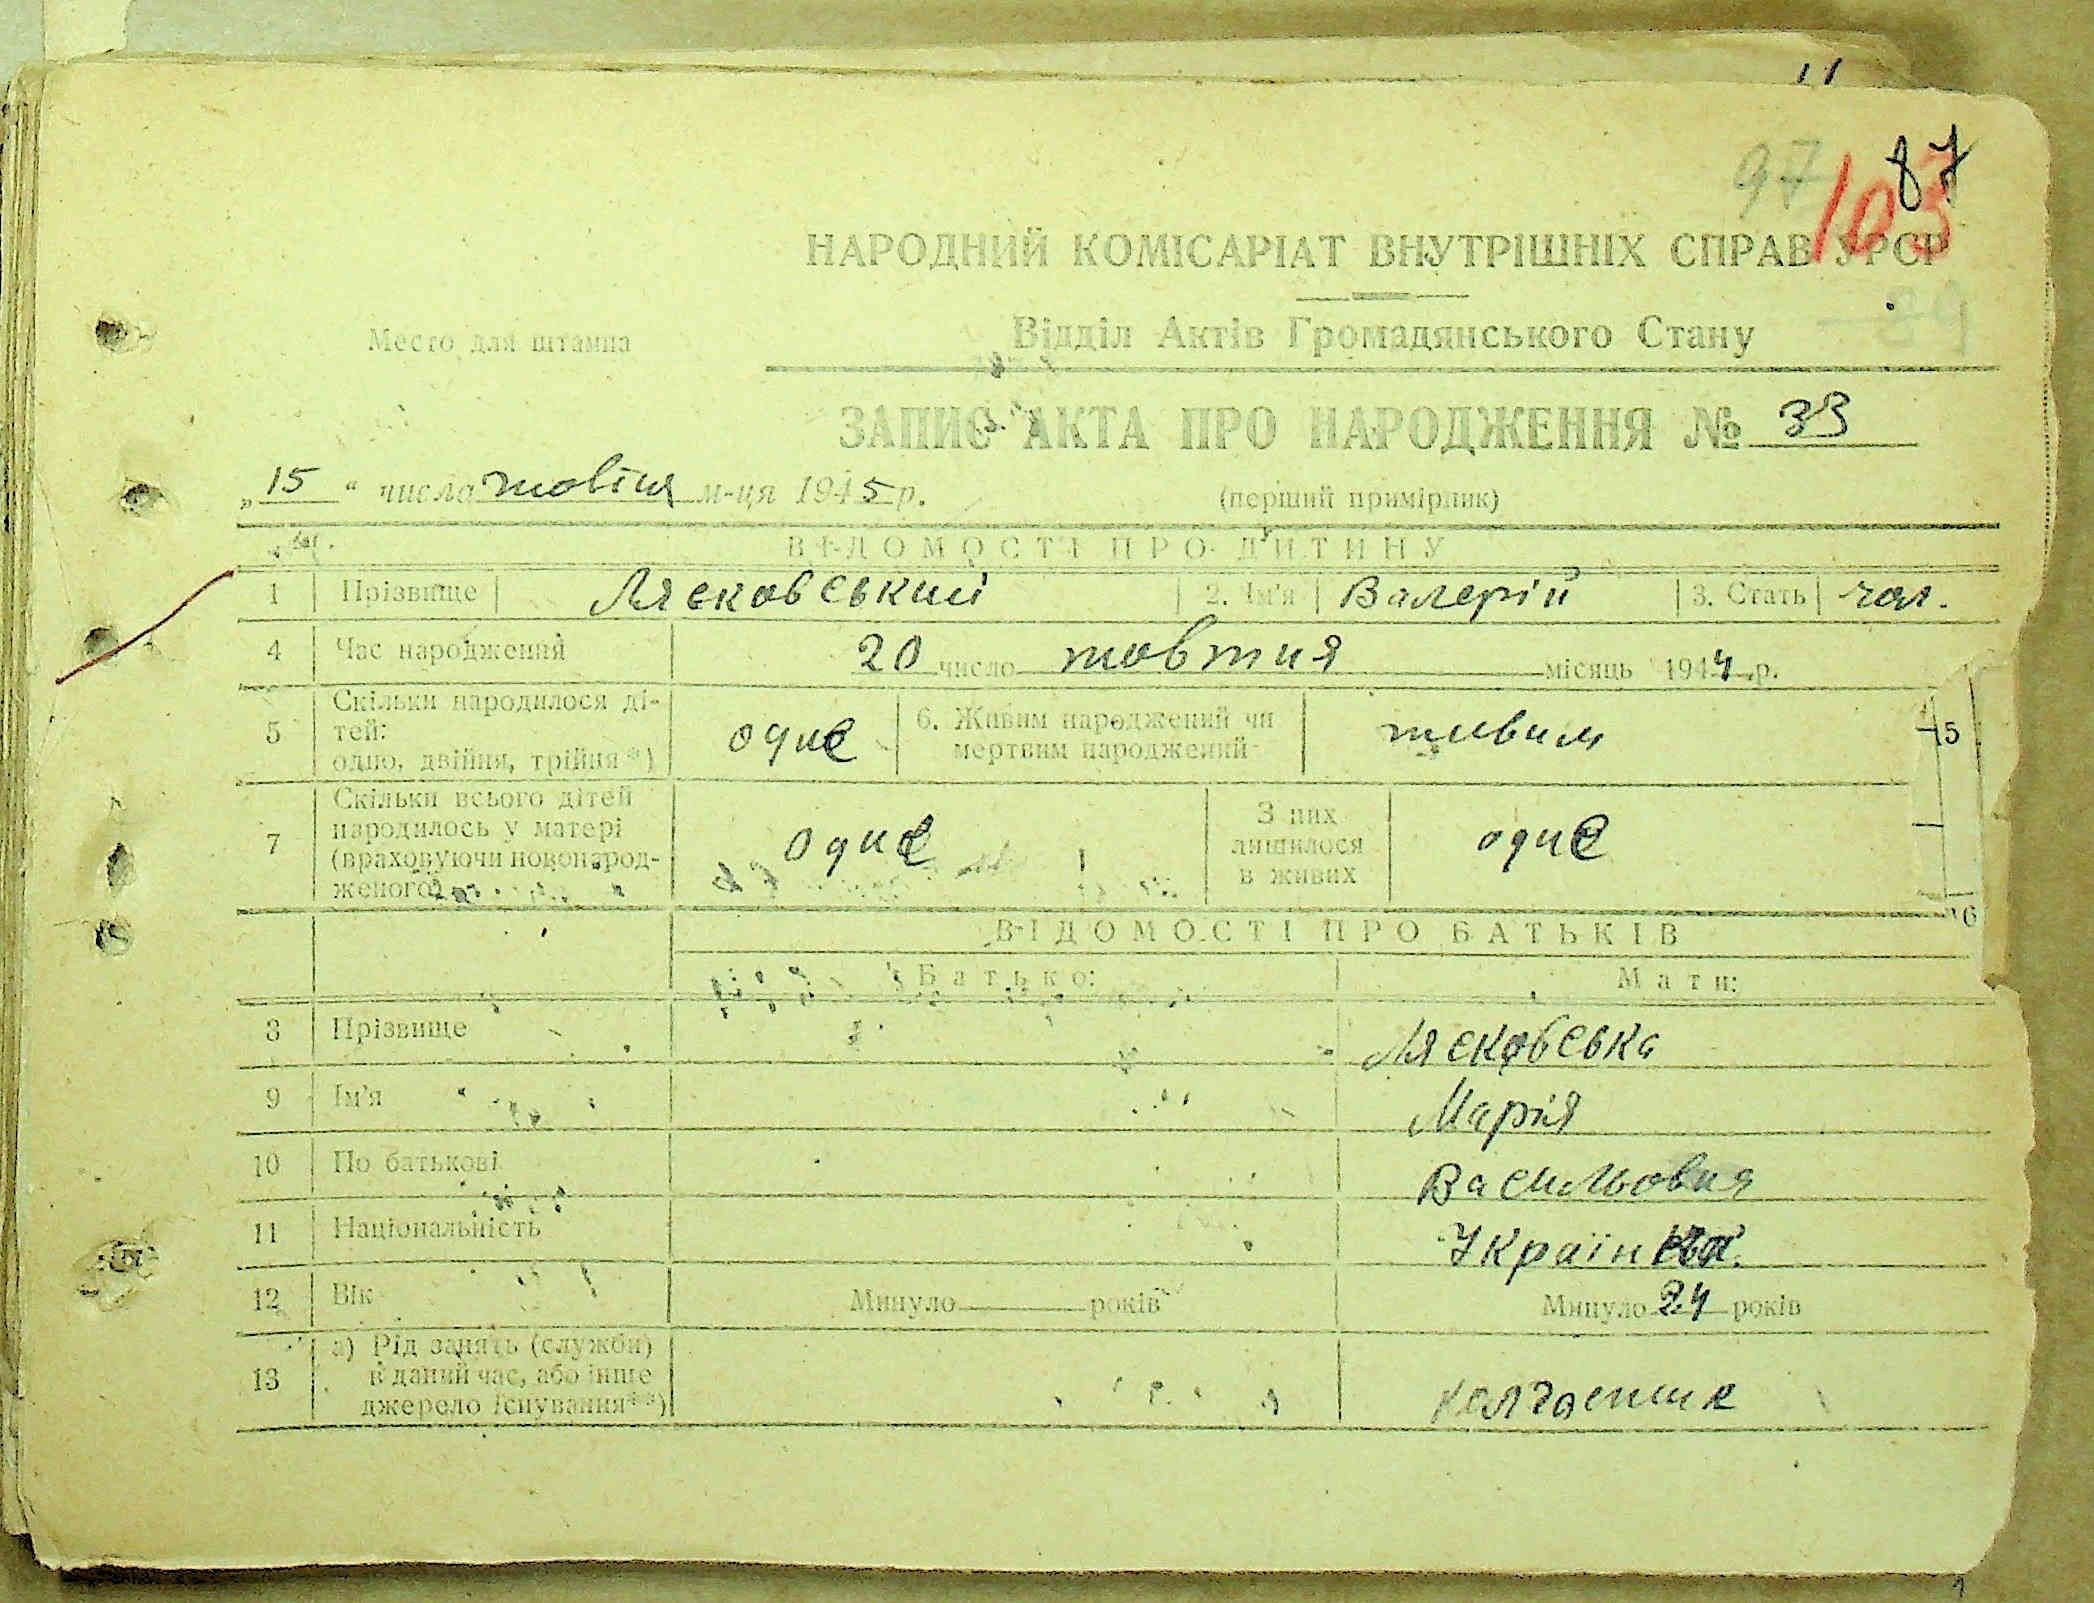 97 103 87
НАРОДНИЙ КОМІСАРІАТ ВНУТРІШНІХ СПРАВ УРСР
Место для штампа
Відділ Актів Громадянського Стану
ЗАПИС АКТА ПРО НАРОДЖЕННЯ № 33
„15“ числа м-ця 1945 р. (перший примірник)
ВІДОМОСТІ ПРО ДИТИНУ
1 Прізвище Лясковський 2. Ім'я Валерій 3. Стать чол.
4 Час народження 20 число жовтня місяць 1944 р.
5 Скільки народилося ді-
тей:
одно, двійня, трійня*) одне 6. Живим народжений чи
мертвим народжений живим
5
7 Скільки всього дітей
народилось у матері
(враховуючи новонарод-
женого) одне З них
лишилося
в живих одне
6
ВІДОМОСТІ ПРО БАТЬКІВ
Батько: Мати:
8 Прізвище Лясковська
9 Ім'я Марія
10 По батькові Васильовна
11 Національність Українка
12 Вік Минуло років Минуло 24 років
13 а) Рід занять (служби)
в даний час, або інше
джерело існування**)